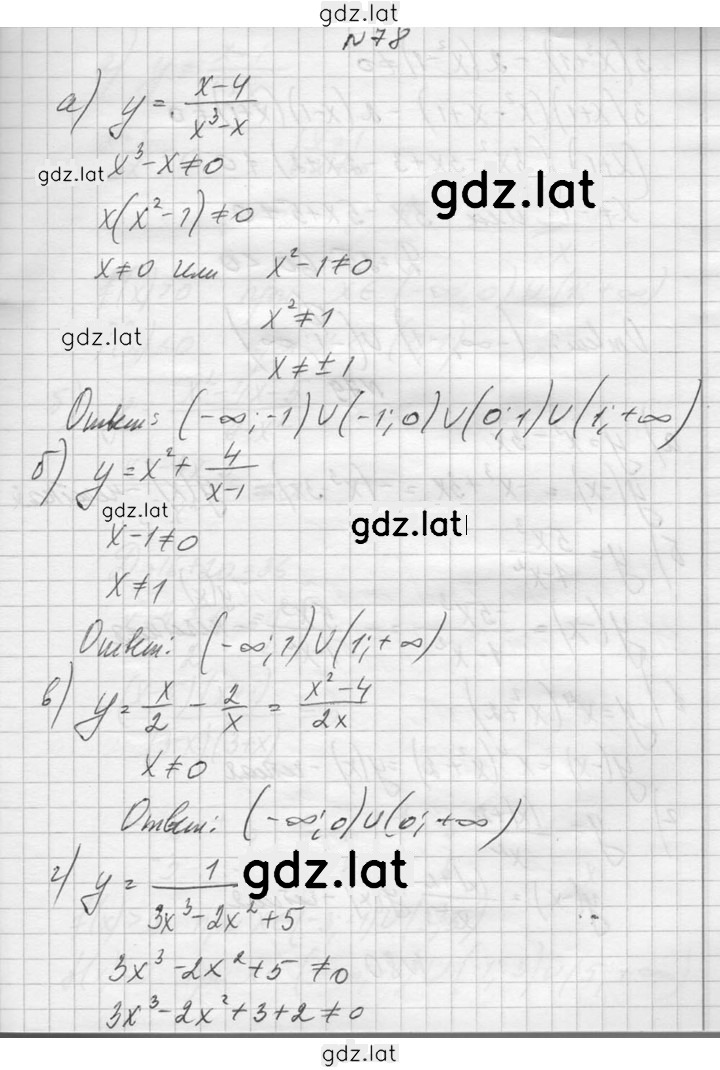 gdz.lat
N78
а) y = (x-4)/(x³-x)
gdz.lat x³-x≠0
gdz.lat
x(x²-1)≠0
x≠0 или x²-1≠0
x²≠1
gdz.lat
x≠±1
Ответ: (-∞;-1)∪(-1;0)∪(0;1)∪(1;+∞)
б) y=x²+4/(x-1)
gdz.lat
gdz.lat
x-1≠0
x≠1
Ответ: (-∞;1)∪(1;+∞)
в) y=x/2 - 2/x = (x²-4)/(2x)
x≠0
Ответ: (-∞;0)∪(0;+∞)
г) y = 1/(3x³-2x²+5)
gdz.lat
3x³-2x²+5≠0
3x³-2x²+3+2≠0
gdz.lat